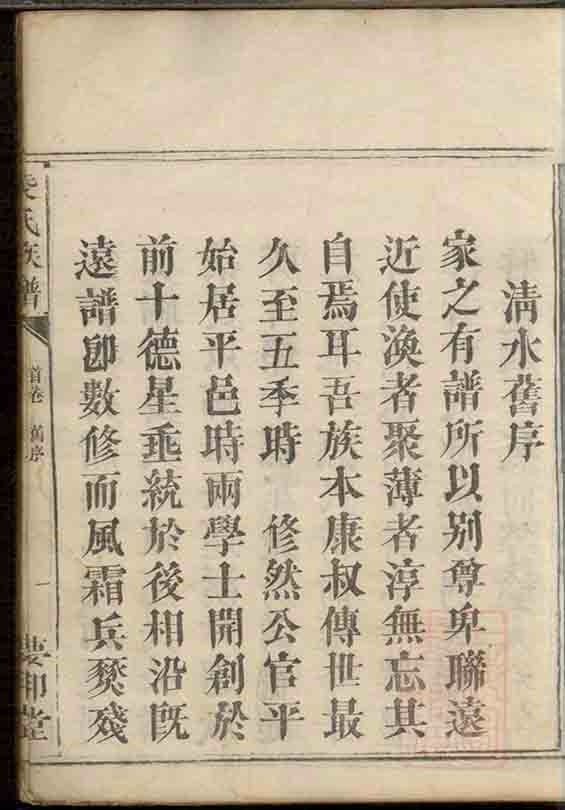 清水舊序
家之有譜所以别尊卑聯遠
近使渙者聚薄者淳無忘其
自焉耳吾族本康叔傳世最
久至五季時　修然公官平
始居平邑時兩學士開創於
前十德星垂統於後相沿既
遠譜卽數修而風霜兵燹殘
氏族譜
首卷　舊序
一
堂